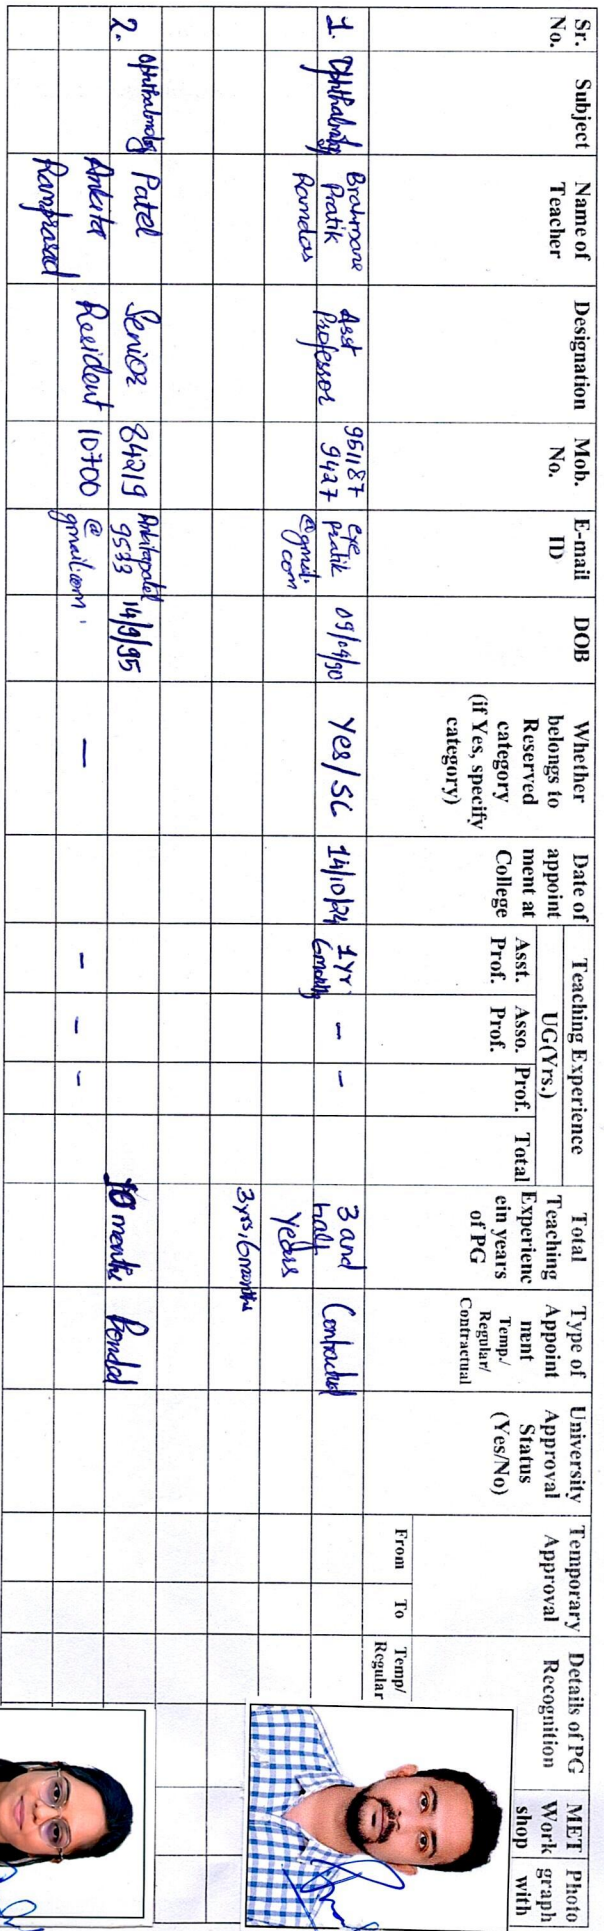 Sr. No.
Subject
Name of Teacher
Designation
Mob. No.
E-mail ID
DOB
Whether belongs to Reserved category (if Yes, specify category)
Date of appoint ment at College
Teaching Experience
UG(Yrs.)
Asst. Prof.
Asso. Prof.
Prof.
Total
Total Teaching Experienc ein years of PG
Type of Appoint ment Temp./ Regular/ Contractual
University Approval Status (Yes/No)
Temporary Approval
From
To
Details of PG Recognition
Temp/ Regular
MET Work shop
Photo graph with
1.
Ophthalmology
Brahmane
Pratik
Ramdas
Asst
Professor
951187
9427
eye
pratik
@gmail.
com
09/04/90
Yes/SC
14/10/24
1yr.
6months
-
-
3 and
half
years
3yrs, 6months
Contractual
2.
Ophthalmology
Patel
Ankita
Ramprasad
Senior
Resident
84219
10700
Ankitapatel
9533
@
gmail.com.
14/9/95
-
-
-
-
10 months
Bonded